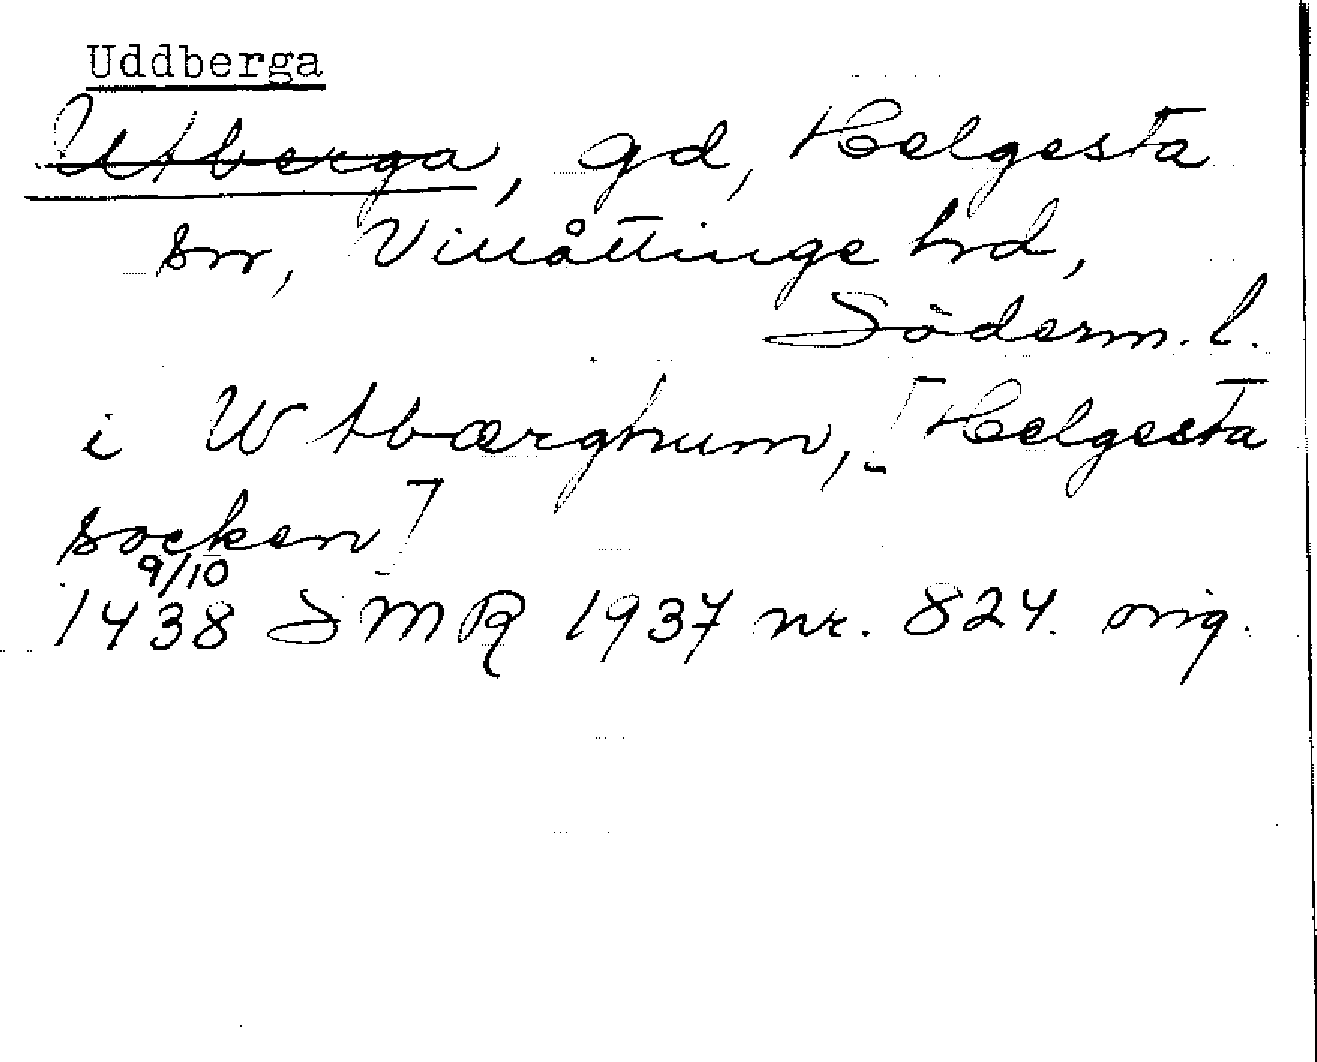 Uddberga
Utberga, gd, Helgesta
sn, Villåttinge hd,
Söderm. l.
i Wtbærghum, [Helgesta
socken]
9/10
1438 SMR 1937 nr. 824. orig.